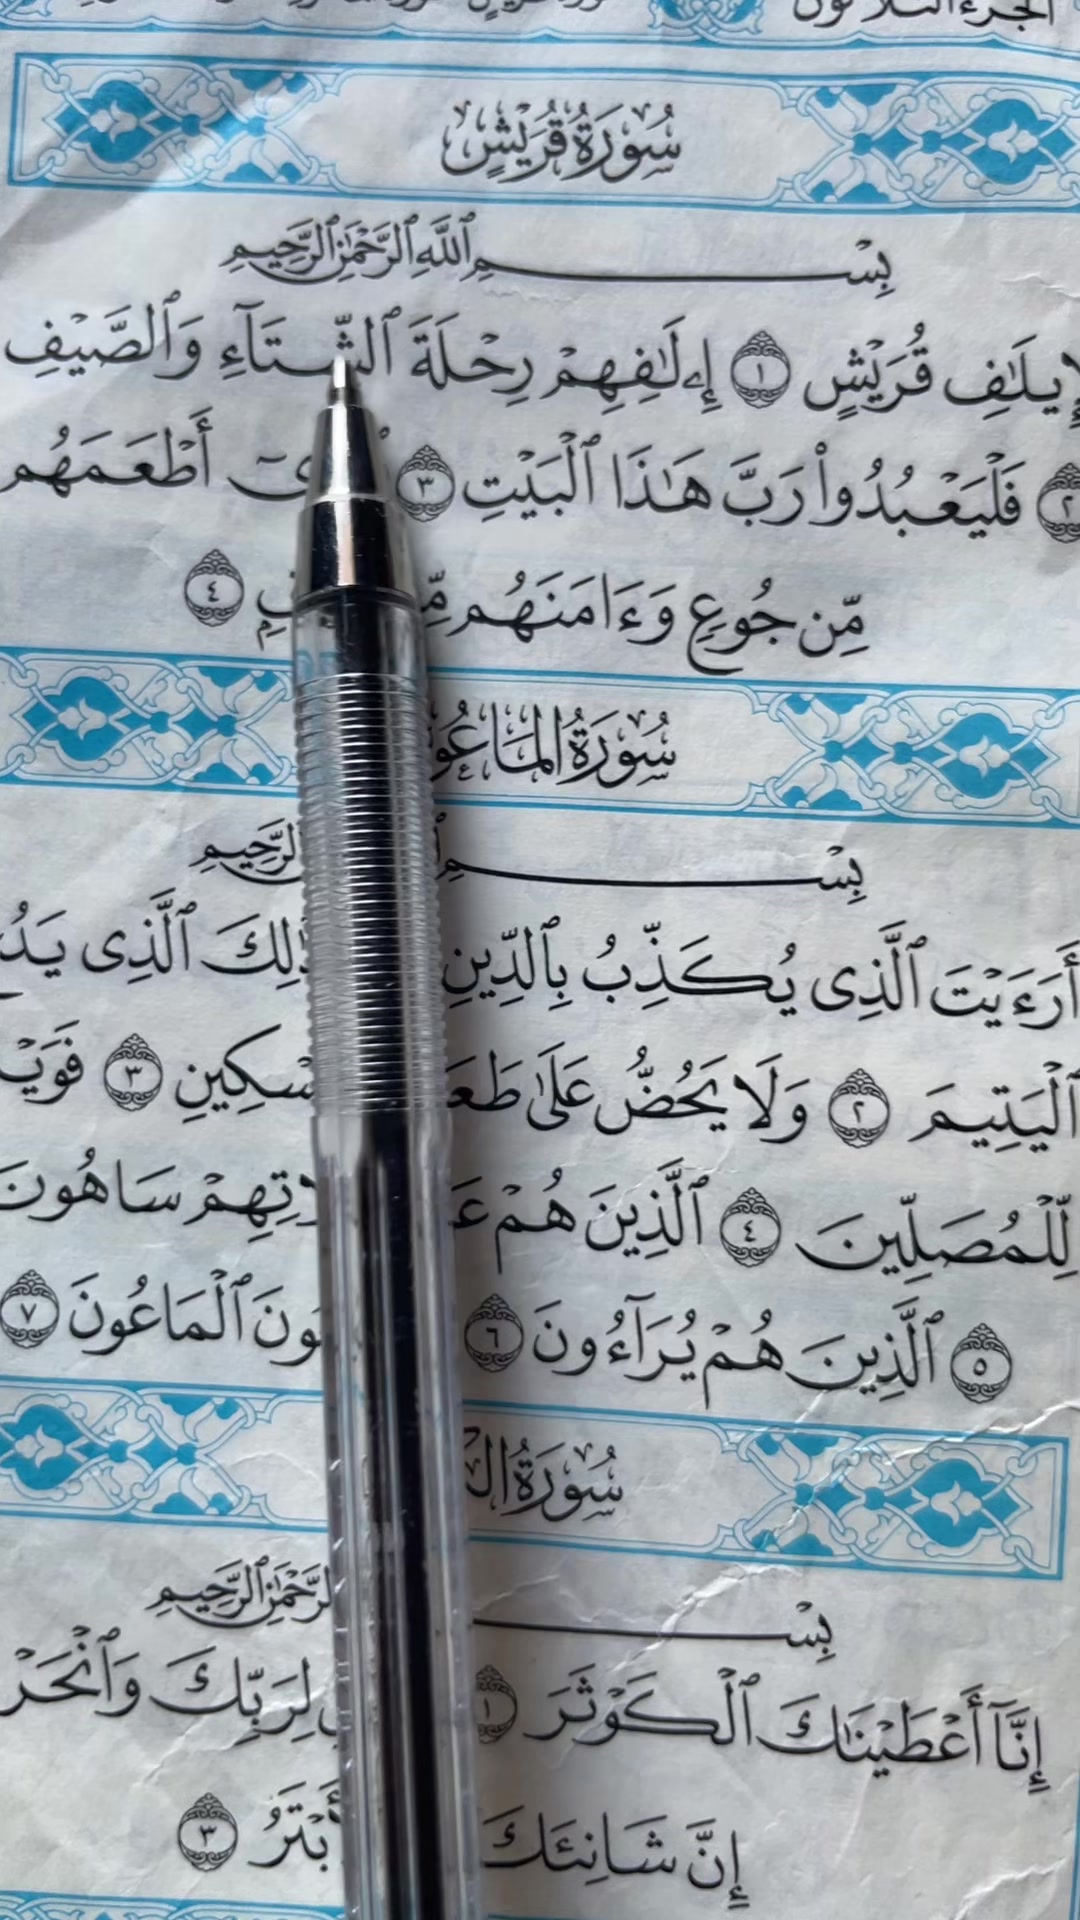 الجزء الثلاثون
سُورَةُ قُرَيْشٍ
بِسْمِ ٱللَّهِ ٱلرَّحْمَٰنِ ٱلرَّحِيمِ
لِإِيلَٰفِ قُرَيْشٍ ١ إِۦلَٰفِهِمْ رِحْلَةَ ٱلشِّتَآءِ وَٱلصَّيْفِ
٢ فَلْيَعْبُدُوا۟ رَبَّ هَٰذَا ٱلْبَيْتِ ٣ أَطْعَمَهُم
مِّن جُوعٍ وَءَامَنَهُم ٤
سُورَةُ
بِسْمِ ٱلرَّحِيمِ
أَرَءَيْتَ ٱلَّذِى يُكَذِّبُ بِٱلدِّينِ ٱلَّذِى
ٱلْيَتِيمَ ٢ وَلَا يَحُضُّ عَلَىٰ ٣
لِّلْمُصَلِّينَ ٤ ٱلَّذِينَ هُمْ سَاهُونَ
٥ ٱلَّذِينَ هُمْ يُرَآءُونَ ٦ ٱلْمَاعُونَ ٧
سُورَةُ
ٱلرَّحِيمِ
إِنَّآ أَعْطَيْنَٰكَ ٱلْكَوْثَرَ ١ لِرَبِّكَ وَٱنْحَرْ
إِنَّ شَانِئَكَ ٣